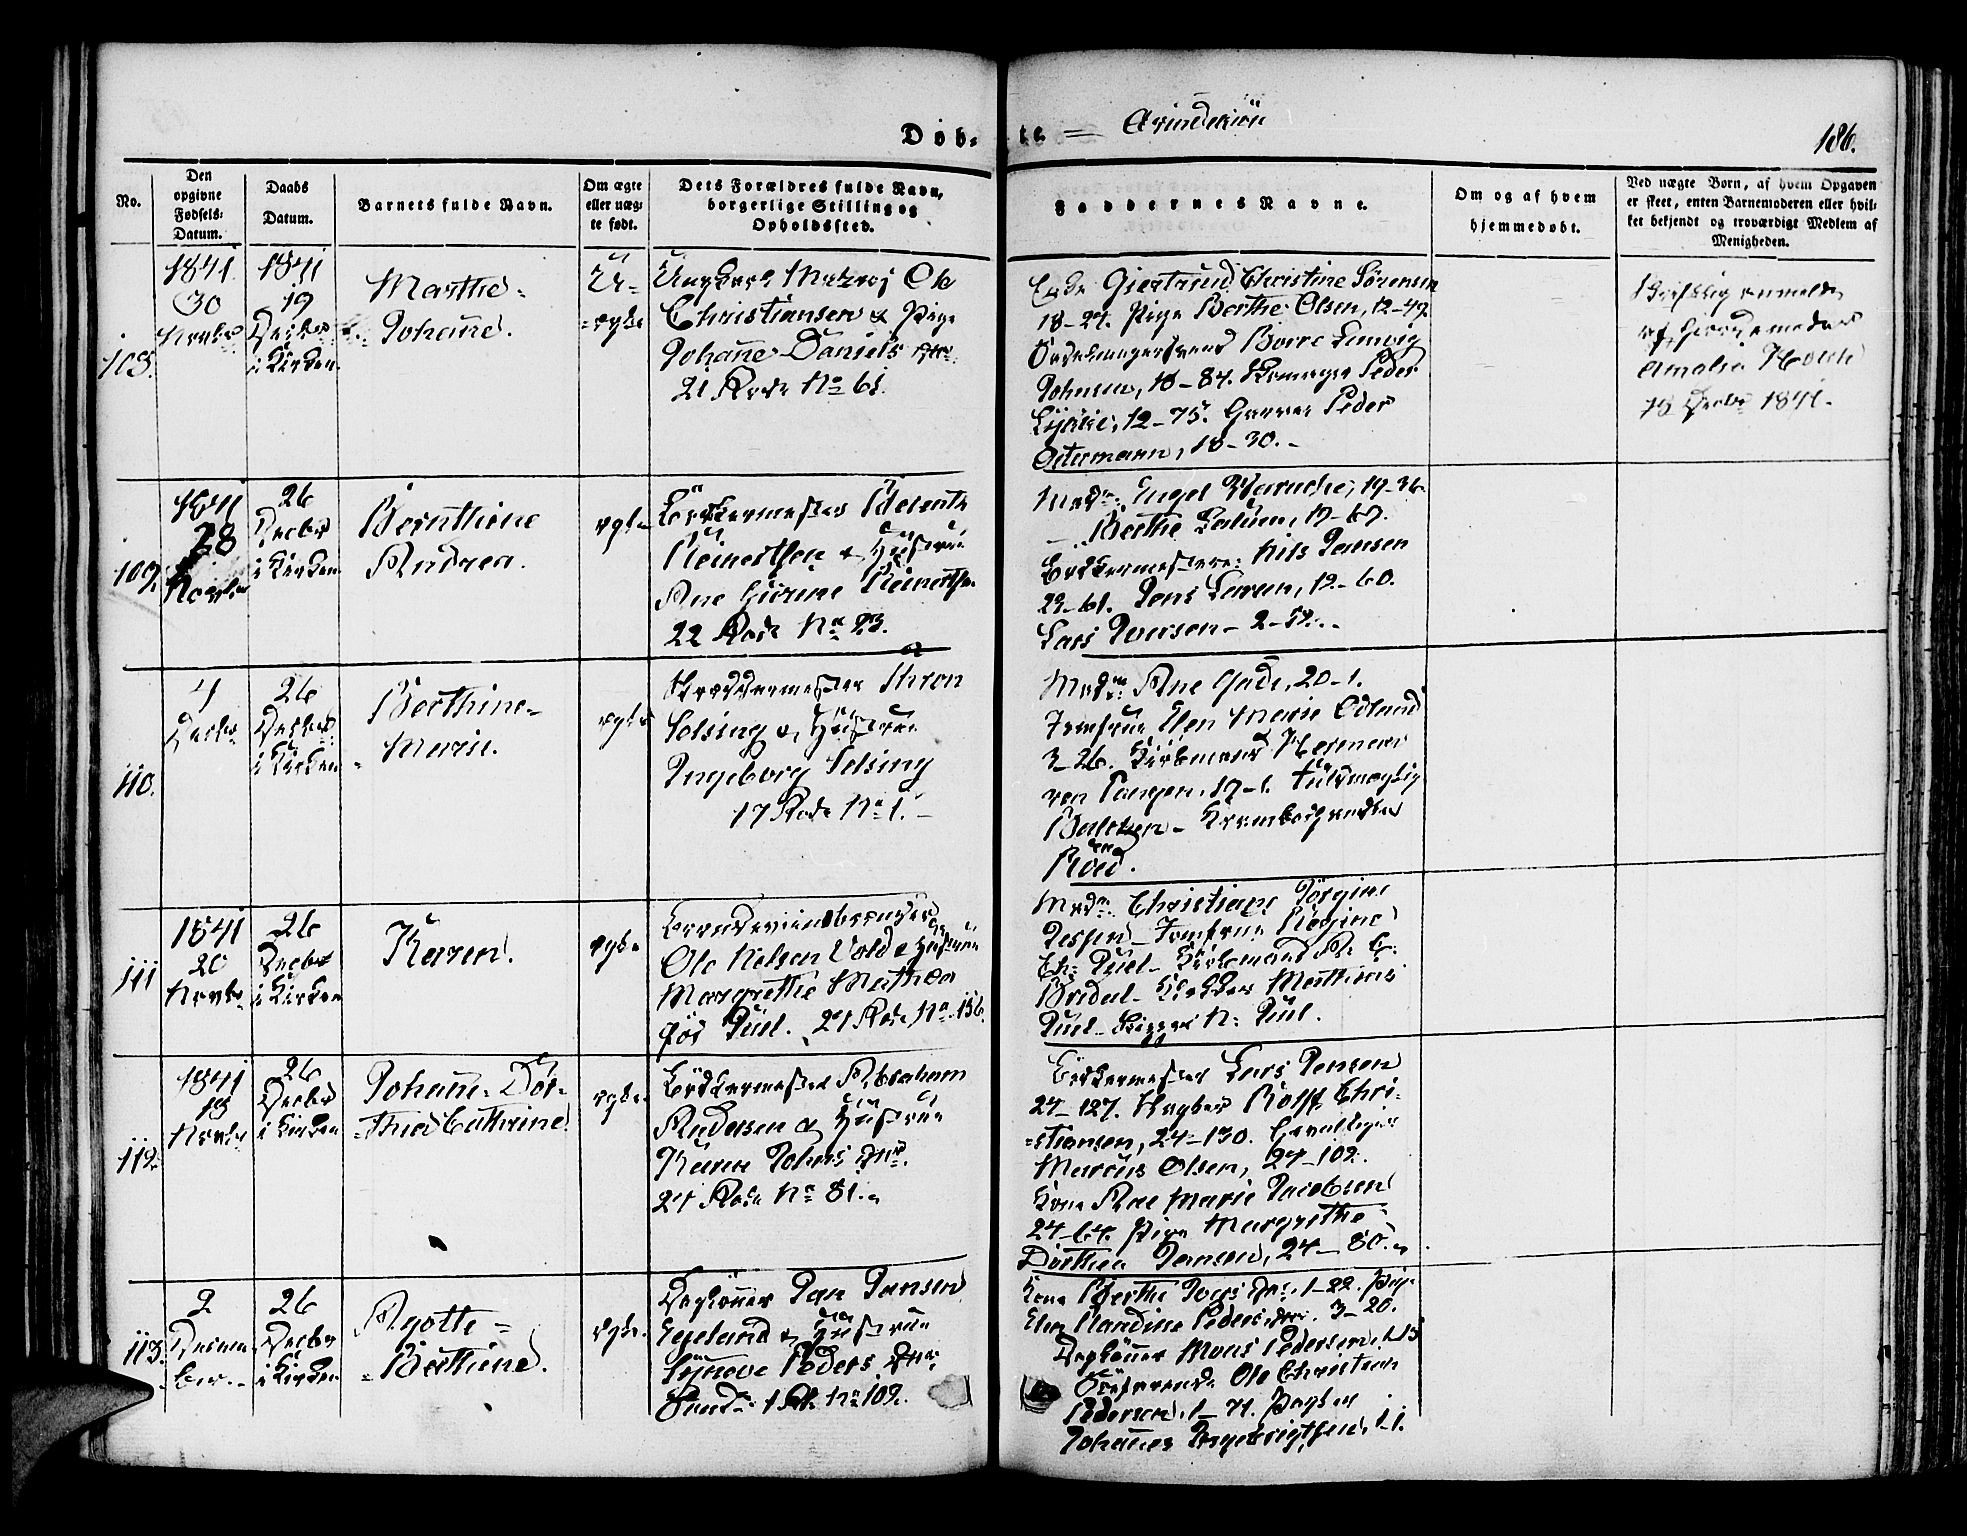 Døb-
te = Qvindekiön
186.
No.
Den
opgivne
Fødsels-
Datum.
Daabs
Datum.
Barnets fulde Navn.
Om ægte
eller uæg-
te født.
Dets Forældres fulde Navn,
borgerlige Stilling og
Opholdssted.
Faddernes Navne.
Om og af hvem
hjemmedøbt.
Ved uægte Børn, af hvem Opgaven
er skeet, enten Barnemoderen eller hvil-
ket bekjendt og troværdigt Medlem af
Menigheden.
108.
1841
30
Novbr
1841
19
Decbr
i Kirken
Marthe
Johanne.
U-
ægte
Ungkarl Matros Ole
Christiansen & Pige
Johanne Daniels Dtr
21 Rode No 61.
Enke Giertrud Christine Sörensen
18-27. Pige Berthe Olsen, 12-49.
Johnsen, 18-84. Peder
12-75. Peder
Ostermann, 18-30.
Skriftlig anmeldt
af Jordemoder
Amalia
18 Decbr 1841.
109.
1841
28
Novbr
26
Decbr
i Kirken
Bernthine
Andrea.
ægte
Bödkermester Bernth
Reinertsen & Hustrue
Ane Reinertsen
22 Rode No 23.
Mad: Engel 19-36.
- Berthe 17-67.
Bödkermestere: Nils Jansen
22-61. Jens 19-60.
Lars Iversen - 2-52.
110.
4
Decbr
26
Decbr
i Kirken
Berthine
Marie.
ægte
Skreddermester Thron
Selsing & Hustrue
Ingeborg Selsing
17 Rode No 1.
Madm Ane Gade, 20-1.
Jomfrue Elen Marie Odland
3-26. Kiöbmand Herman
von Tangen, 17-1. Fuldmægtig
Balchen -
Röed.
111
1841
20
Novbr
26
Decbr
i Kirken
Karen.
ægte
Brændeviinsbrænder
Ole Nielsen Vold & Hustrue
Margrethe Mathea
föd Juel. 21 Rode No 156.
Madm Christiane Jörgine
Jespen - Jomfrue Regine
Ch: Juel - Kiöbmand A. C.
Bredal - Klokker Matthias
Juel - N: Juel.
112.
1841
18
Novbr
26
Decbr
i Kirken
Johanne Dor-
thea Cathrine.
ægte
Bödkermester Abraham
Andersen & Hustrue
Karen Johns Dtr.
24 Rode No 81.
Bödkermester Lars Jensen
24-127. Rolff Chri-
stiansen, 24-130.
Marcus Olsen, 24-102.
Kone Ane Marie Jacobsen
24-64. Pige Margrethe
Dorthea Jansen, 24-80.
113.
2
Decem-
ber.
26
Decbr
i Kirken
Agotte
Berthine.
ægte
Dagleier Jan Jansen
Egeland & Hustrue
Synneve Peders Dtr
1 Rde No 109.
Kone Berthe Joens Dtr. 1-22. Pige
Elen Nandine Peders dtr. 3-20.
Mons Pedersen, 1-15
Söefarende Ole Christian
Pedersen, 1-71.
Johannes Ingebrigtsen, 1-1.